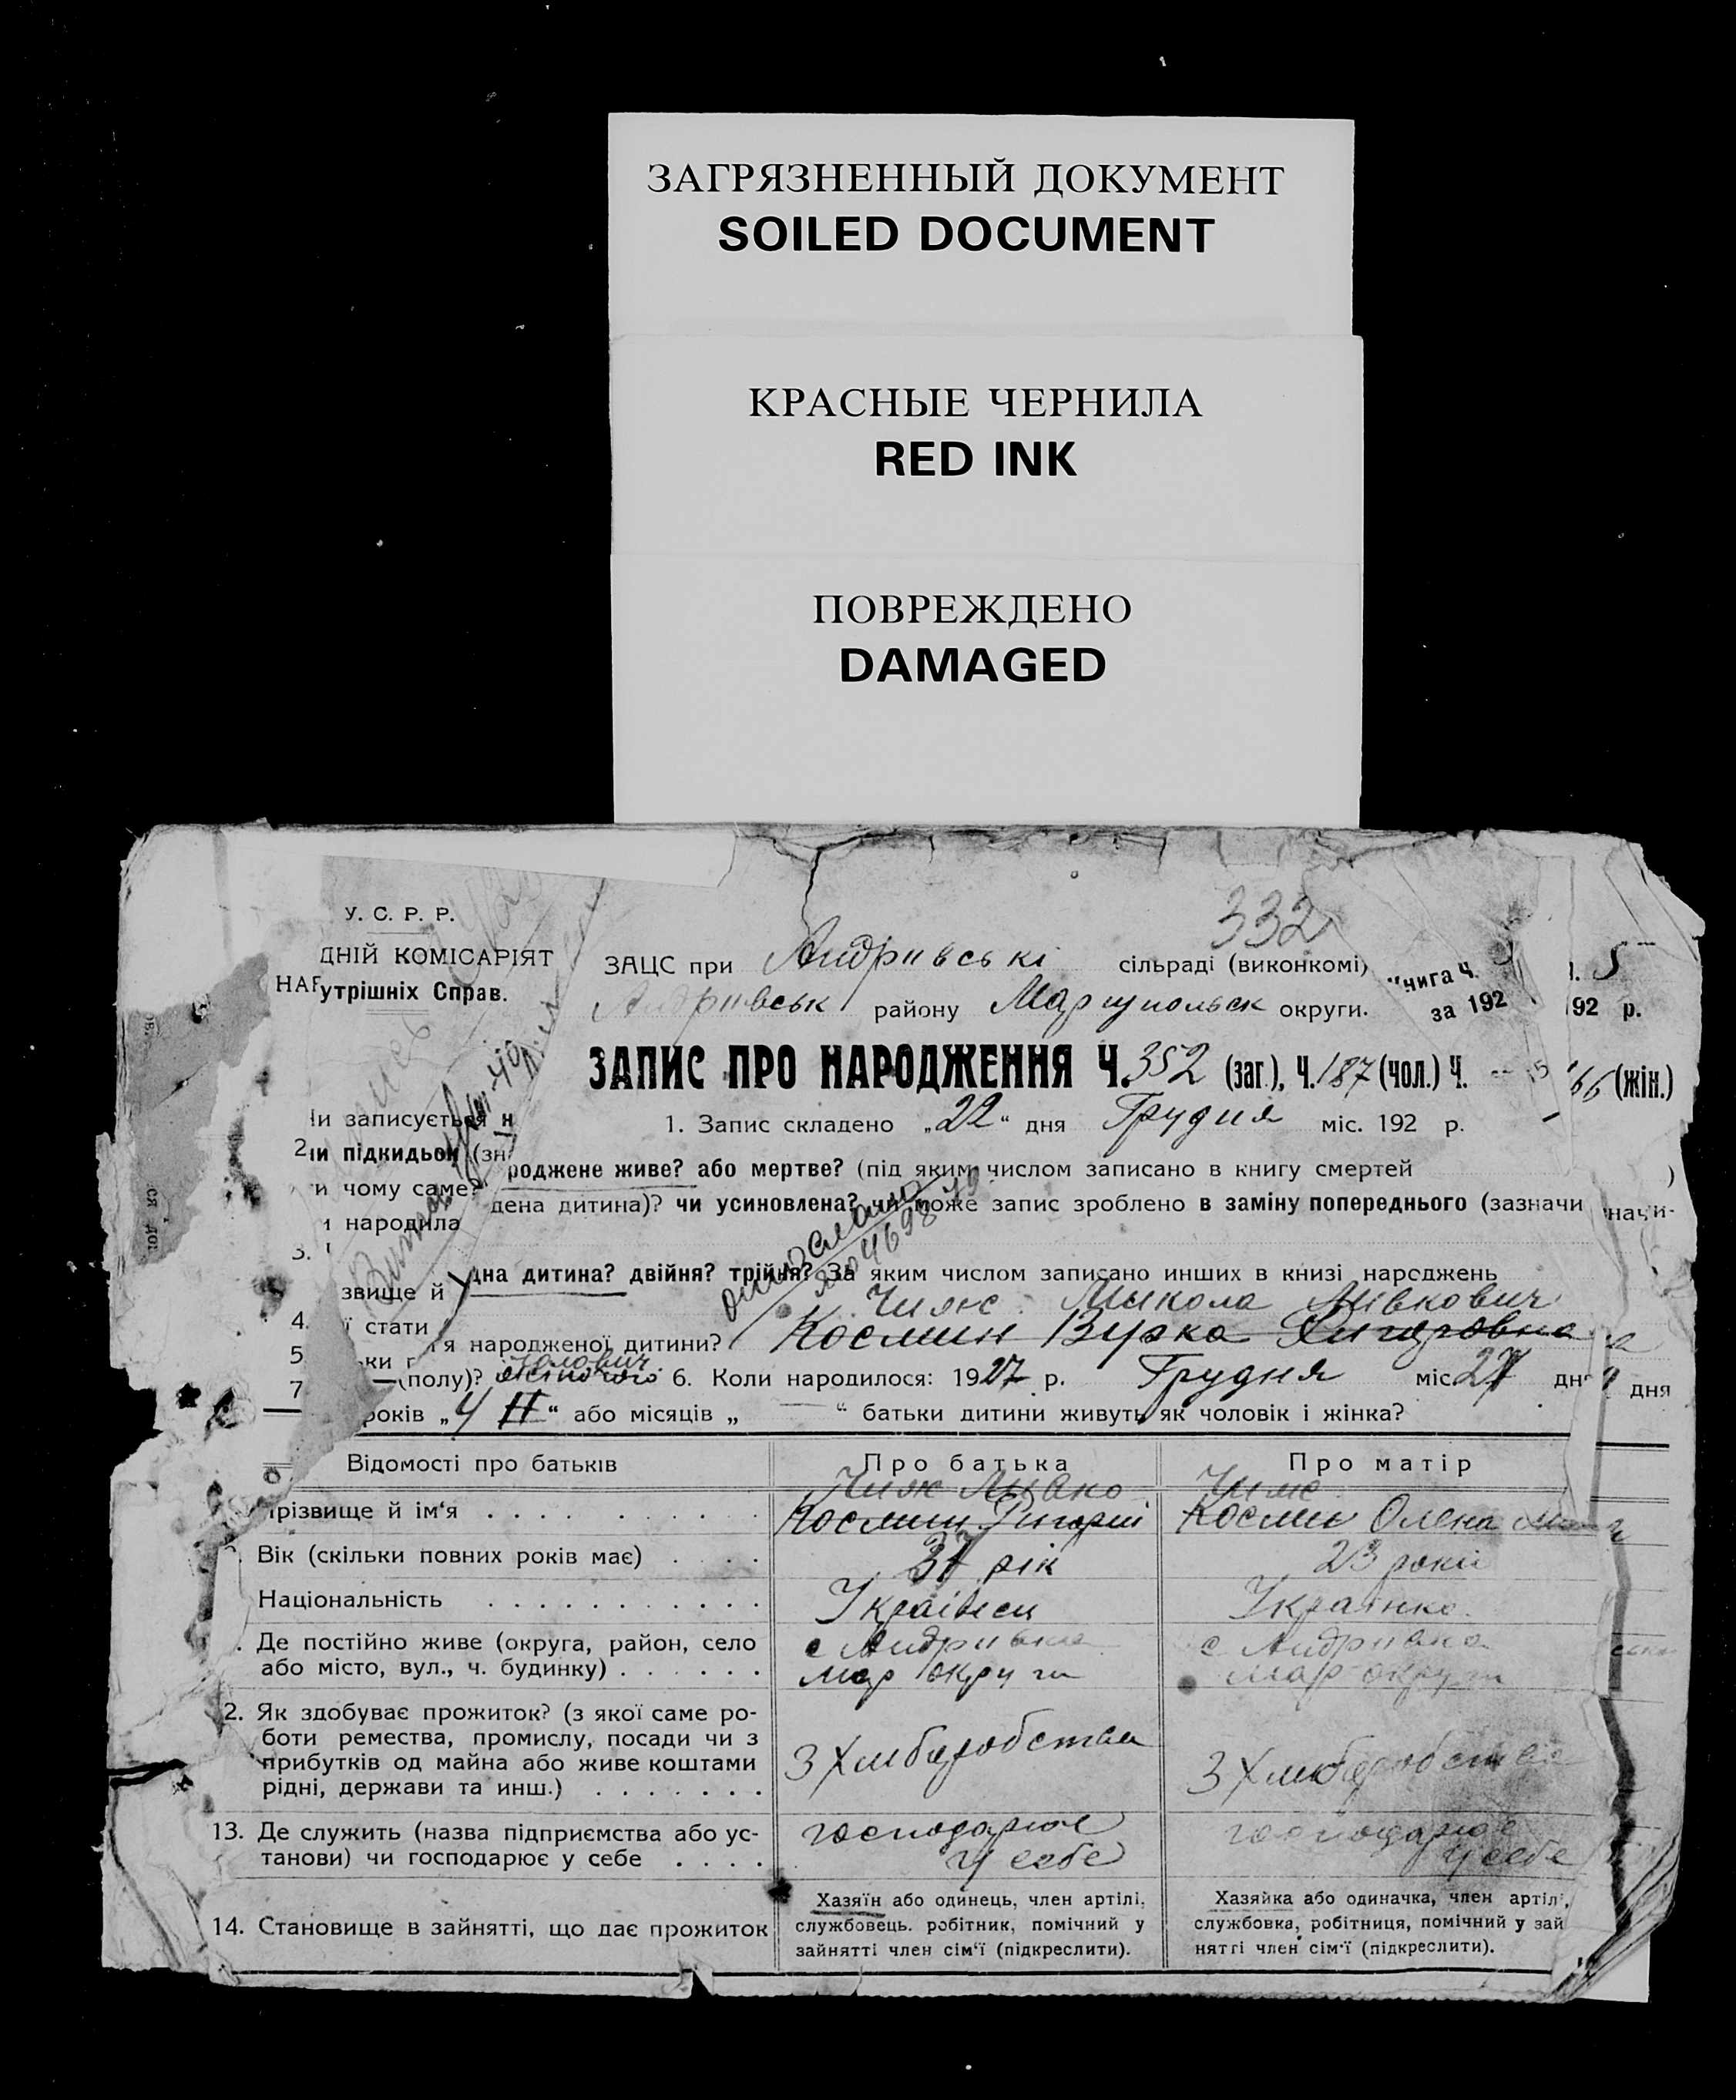 ЗАГРЯЗНЕННЫЙ ДОКУМЕНТ
SOILED DOCUMENT
КРАСНЫЕ ЧЕРНИЛА
RED INK
ПОВРЕЖДЕНО
DAMAGED
332
У. С. Р. Р.
ДНІЙ КОМІСАРІЯТ
НАР утрішніх Справ.
ЗАЦС при Андриівські сільраді (виконкомі)
Андриівськ району Маріупольск округи.
Книга ч. 5
за 192 92 р.
ЗАПИС ПРО НАРОДЖЕННЯ Ч. 352 (заг.), Ч. 187 (чол.) Ч. 166 (жін.)
1. Запис складено „22“ дня Грудня міс. 192 р.
чи записується н роджене живе? або мертве? (під яким числом записано в книгу смертей )
2. чи підкидьок (зн дена дитина)? чи усиновлена? чи може запис зроблено в заміну попереднього (зазначи
и чому саме?
и народила дна дитина? двійня? трійня? За яким числом записано инших в книзі народжень
3.
Чиж Микола
звище й м'я народженої дитини? Космин
4. її стати (полу)? 6. Коли народилося: 1927 р. Грудня міс. дня
5
7 ьки років „4“ або місяців „ “ батьки дитини живуть як чоловік і жінка?
Відомості про батьків Про батька Про матір
Чиж Чиж
Прізвище й ім'я Космин Григорій Космин Олена
Вік (скільки повних років має) рік 23 роки
Національність Українец Українка
Де постійно живе (округа, район, село с Андриівка с Андриівка
або місто, вул., ч. будинку) мар округи мар округи
2. Як здобуває прожиток? (з якої саме ро-
боти ремества, промислу, посади чи з
прибутків од майна або живе коштами
рідні, держави та инш.) З Хліборобства З Хліборобства
13. Де служить (назва підприємства або ус- господарює господарює
танови) чи господарює у себе у себе у себе
14. Становище в зайнятті, що дає прожиток
Хазяїн або одинець, член артілі,
службовець. робітник, помічний у
зайнятті член сім'ї (підкреслити).
Хазяйка або одиначка, член артіл
службовка, робітниця, помічний у зай
нятті член сім'ї (підкреслити).